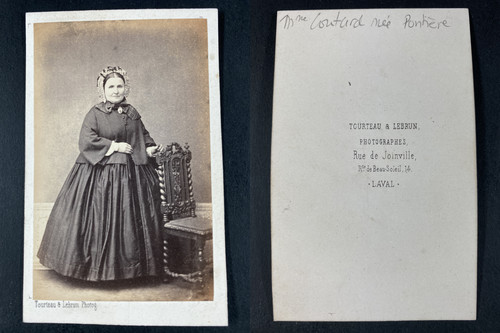 Tourteau & Lebrun Photog.
Mme Coutard née Pontière
TOURTEAU & LEBRUN,
PHOTOGRAPHES,
Rue de Joinville,
Rlle de Beau-Soleil, 14.
- LAVAL -